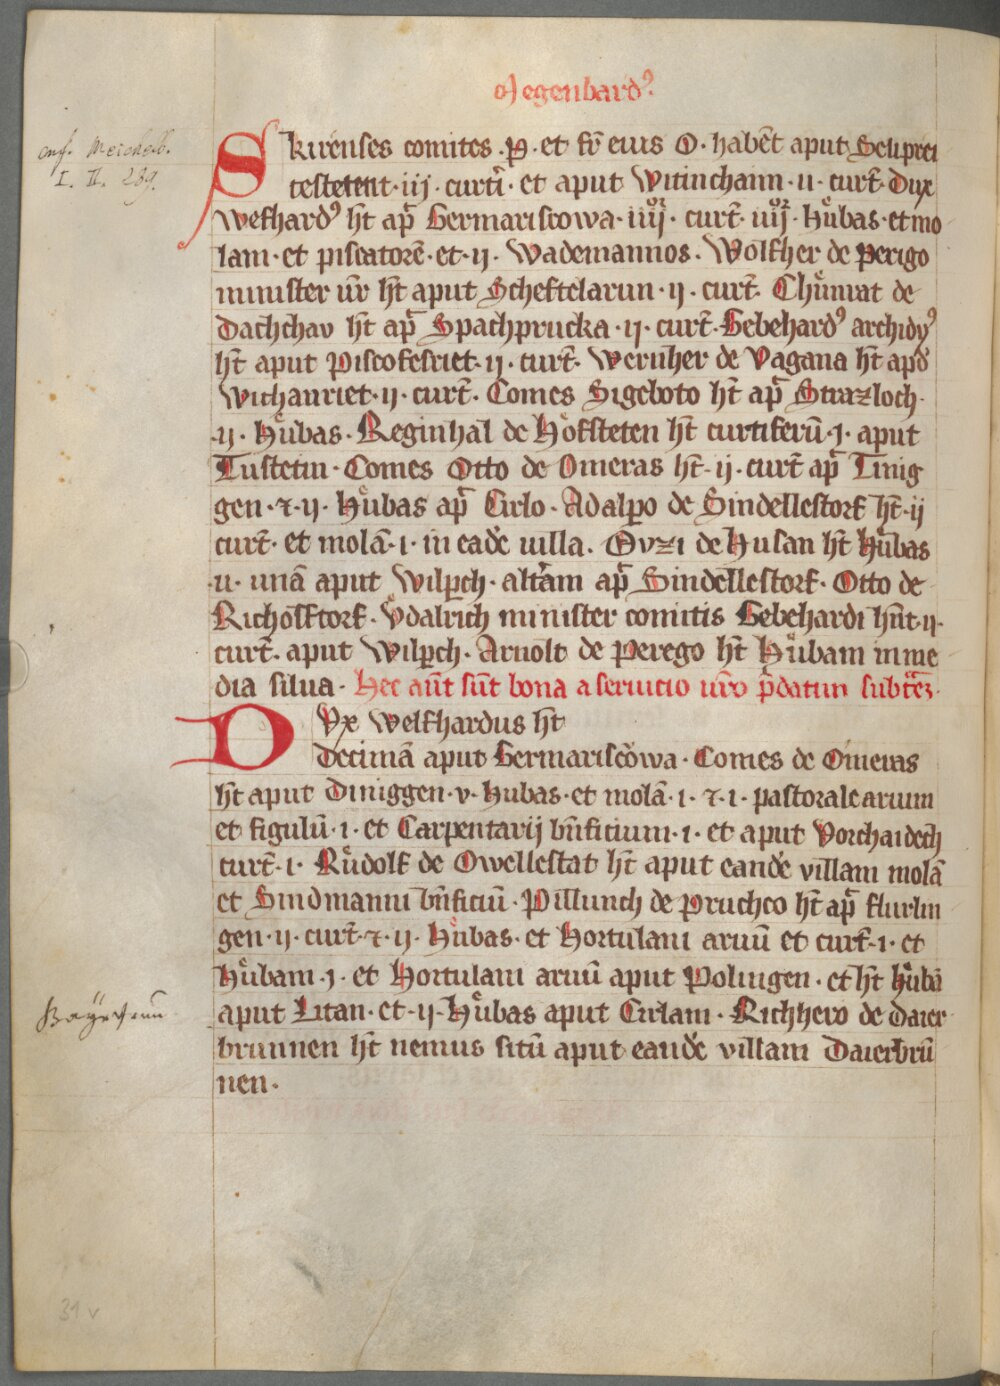 Megenhardꝰ.
conf. Meichelb.
I. II. 289.
Skirenses comites .P. et fr̄ eius O. habēt aput Seliprei
testetent. iij. curtī. et aput Witinchann. ii. curt̄. Dux
Welfhardꝰ ht̄ ap̄ Germariscowa. iiijor. curt̄. iiijor. Hůbas. et mo
lam. et piscatorē. et. ij. Wademannos. Wolfher de Perigo
minister ūr ht̄ aput Scheftelarun. ij. curt̄. Chůnrat de
Dachchav ht̄ ap̄ Spachprucka. ij. curt̄. Gebehardꝰ archidyꝰ
ht̄ aput Piscofesriet. ij. curt̄. Wernher de Vagana ht̄ apd̄
Wichanriet. ij. curt̄. Comes Sigeboto ht̄ ap̄ Strazloch.
.ij. Hůbas. Reginhal de Hofsteten ht̄ curtiferū. j. aput
Tustetin. Comes Otto de Omeras ht̄. ij. curt̄ ap̄ Tinig
gen. ⁊. ij. Hůbas ap̄ Cirlo. Adalpo de Sindellestorf ht̄. ij
curt̄. et molā. i. in eadē uilla. Ovzi de Husan ht̄ Hůbas
.ii. unā aput Wilpch. altam ap̄ Sindellestorf. Otto de
Richolftorf. Vdalrich minister comitis Gebehardi hn̄t. ij.
curt̄. aput Wilpch. Arnolt de Perego ht̄ Hůbam in me
dia silua. Hec aūt sūt bona a seruicio ūro p̄datim subt̄cͣ.
Dvx Welfhardus ht̄
Decimā aput Germariscowa. Comes de Omeras
ht̄ aput Diniggen. v. Hubas. et molā. i. ⁊. i. pastorale aruum
et figulū. i. et Carpentarij bn̄ficium. i. et aput Vorchaidech
curt̄. i. Růdolf de Owellestat ht̄ aput eandē villam molā
et Sindmanni bn̄ficiū. Pillunch de Pruchco ht̄ ap̄ flurlin
gen. ij. curt̄. ⁊. ij. Hůbas. et Hortulani aruū et curt̄. i. et
Hůbam. j. et Hortulani aruū aput Polingen. et ht̄ Hůbā
aput Litan. et. ij. Hůbas aput Cirlam. Richhero de Daier
brunnen ht̄ nemus sitū aput eandē villam Daierbrū
nen.
31 v